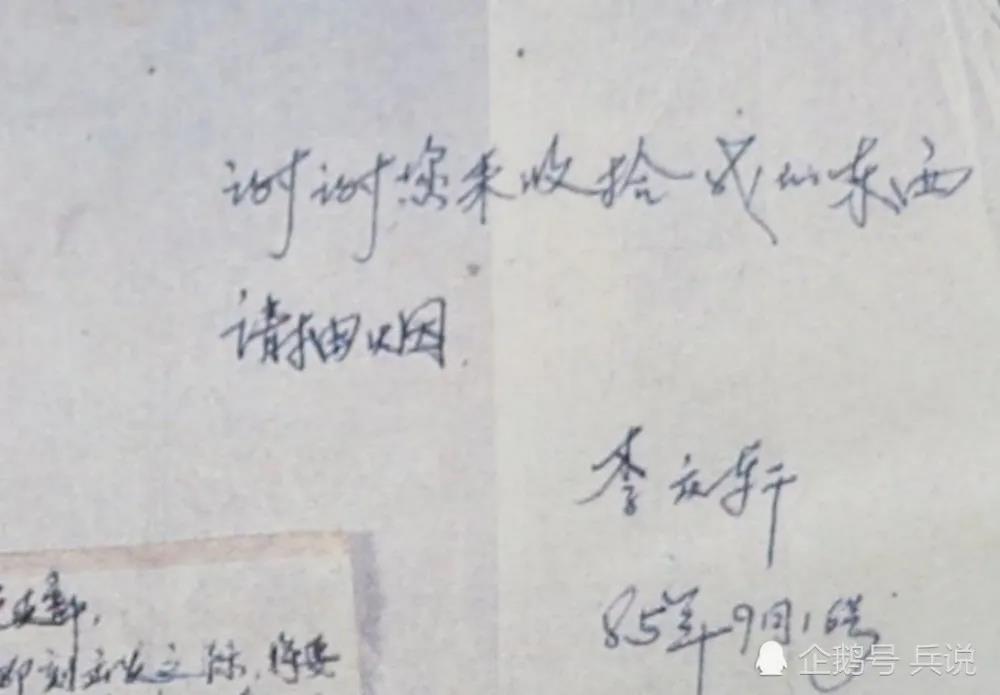 谢谢您来收拾我的东西
请抽烟.
李庆轩
85年9月1号
党支部,
即刻出发之际,将要
企鹅号 兵说